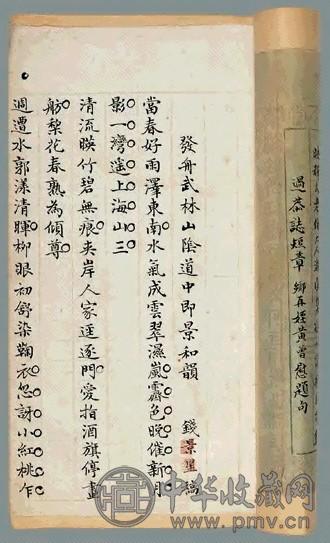 誌短章 鄉再姪黃曾慰題句
發舟武林山陰道中即景和韻 錢景星稿
當春好雨澤東南水氣成雲翠濕嵐霽色晚催新月
影一灣遙上海山三
清流暎竹碧無痕夾岸人家逕逐門愛指酒旗停畫
舫梨花春熟為傾尊
週遭水郭漾清暉柳眼初舒染鞠衣忽訝小紅桃乍
中华收藏网
www.pmv.cn